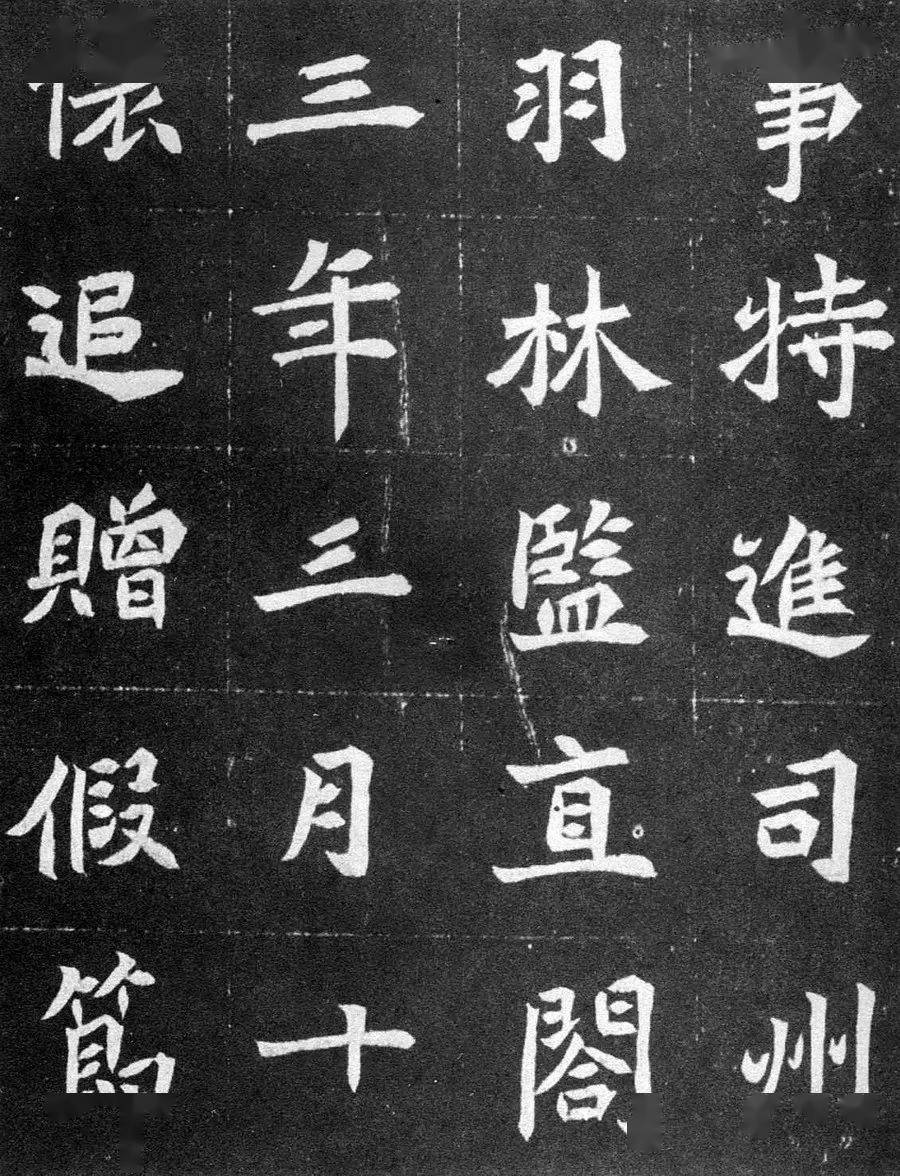 特進司州
羽林監直閤
三年三月十
追贈假節